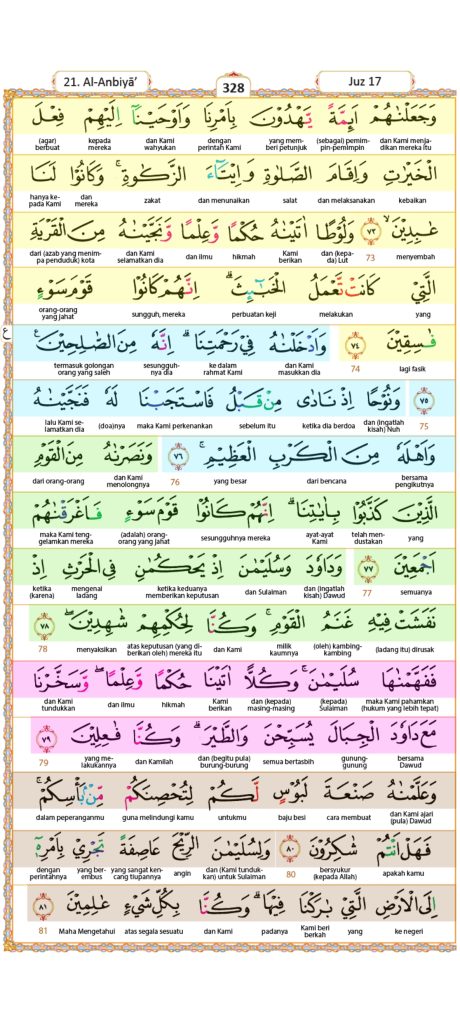 21. Al-Anbiyā’
328
Juz 17
وَجَعَلْنٰهُمْ اَىِٕمَّةً يَّهْدُوْنَ بِاَمْرِنَا وَاَوْحَيْنَآ اِلَيْهِمْ فِعْلَ
dan Kami menjadikan mereka itu (sebagai) pemimpin-pemimpin yang memberi petunjuk dengan perintah Kami dan Kami wahyukan kepada mereka (agar) berbuat
الْخَيْرٰتِ وَاِقَامَ الصَّلٰوةِ وَاِيْتَاۤءَ الزَّكٰوةِۚ وَكَانُوْا لَنَا
kebaikan dan melaksanakan salat dan menunaikan zakat dan mereka hanya kepada Kami
عٰبِدِيْنَۙ ۝٧٣ وَلُوْطًا اٰتَيْنٰهُ حُكْمًا وَّعِلْمًا وَّنَجَّيْنٰهُ مِنَ الْقَرْيَةِ
menyembah 73 dan (kepada) Lut Kami berikan hikmah dan ilmu dan Kami selamatkan dia dari (azab yang menimpa penduduk) kota
الَّتِيْ كَانَتْ تَّعْمَلُ الْخَبٰۤىِٕثَۗ اِنَّهُمْ كَانُوْا قَوْمَ سَوْءٍ
yang melakukan perbuatan keji sungguh, mereka orang-orang yang jahat
فٰسِقِيْنَ ۝٧٤ وَاَدْخَلْنٰهُ فِيْ رَحْمَتِنَاۗ اِنَّهٗ مِنَ الصّٰلِحِيْنَ ࣖ
lagi fasik 74 dan Kami masukkan dia ke dalam rahmat Kami sesungguhnya dia termasuk golongan orang yang saleh
ع
۝٧٥ وَنُوْحًا اِذْ نَادٰى مِنْ قَبْلُ فَاسْتَجَبْنَا لَهٗ فَنَجَّيْنٰهُ
75 dan (ingatlah kisah) Nuh ketika dia berdoa sebelum itu maka Kami perkenankan (doa)nya lalu Kami selamatkan dia
وَاَهْلَهٗ مِنَ الْكَرْبِ الْعَظِيْمِۚ ۝٧٦ وَنَصَرْنٰهُ مِنَ الْقَوْمِ
bersama pengikutnya dari bencana yang besar 76 dan Kami menolongnya dari orang-orang
الَّذِيْنَ كَذَّبُوْا بِاٰيٰتِنَاۗ اِنَّهُمْ كَانُوْا قَوْمَ سَوْءٍ فَاَغْرَقْنٰهُمْ
yang telah mendustakan ayat-ayat Kami sesungguhnya mereka (adalah) orang-orang yang jahat maka Kami tenggelamkan mereka
اَجْمَعِيْنَ ۝٧٧ وَدَاوٗدَ وَسُلَيْمٰنَ اِذْ يَحْكُمٰنِ فِى الْحَرْثِ اِذْ
semuanya 77 dan (ingatlah kisah) Dawud dan Sulaiman ketika keduanya memberikan keputusan mengenai ladang ketika (karena)
نَفَشَتْ فِيْهِ غَنَمُ الْقَوْمِۚ وَكُنَّا لِحُكْمِهِمْ شٰهِدِيْنَۖ ۝٧٨
(ladang itu) dirusak (oleh) kambing-kambing milik kaumnya dan Kami atas keputusan (yang diberikan oleh) mereka itu menyaksikan 78
فَفَهَّمْنٰهَا سُلَيْمٰنَۚ وَكُلًّا اٰتَيْنَا حُكْمًا وَّعِلْمًاۖ وَّسَخَّرْنَا
maka Kami pahamkan (hukum yang lebih tepat) (kepada) Sulaiman dan (kepada) masing-masing Kami berikan hikmah dan ilmu dan Kami tundukkan
مَعَ دَاوٗدَ الْجِبَالَ يُسَبِّحْنَ وَالطَّيْرَۗ وَكُنَّا فٰعِلِيْنَ ۝٧٩
bersama Dawud gunung-gunung semua bertasbih dan (begitu pula) burung-burung dan Kamilah yang melakukannya 79
وَعَلَّمْنٰهُ صَنْعَةَ لَبُوْسٍ لَّكُمْ لِتُحْصِنَكُمْ مِّنْۢ بَأْسِكُمْۚ
dan Kami ajari (pula) Dawud cara membuat baju besi untukmu guna melindungi kamu dalam peperanganmu
فَهَلْ اَنْتُمْ شٰكِرُوْنَ ۝٨٠ وَلِسُلَيْمٰنَ الرِّيْحَ عَاصِفَةً تَجْرِيْ بِاَمْرِهٖٓ
apakah kamu bersyukur (kepada Allah) 80 dan (Kami tundukkan) untuk Sulaiman angin yang sangat kencang tiupannya yang berembus dengan perintahnya
اِلَى الْاَرْضِ الَّتِيْ بٰرَكْنَا فِيْهَاۗ وَكُنَّا بِكُلِّ شَيْءٍ عٰلِمِيْنَ ۝٨١
ke negeri yang Kami beri berkah padanya dan Kami atas segala sesuatu Maha Mengetahui 81